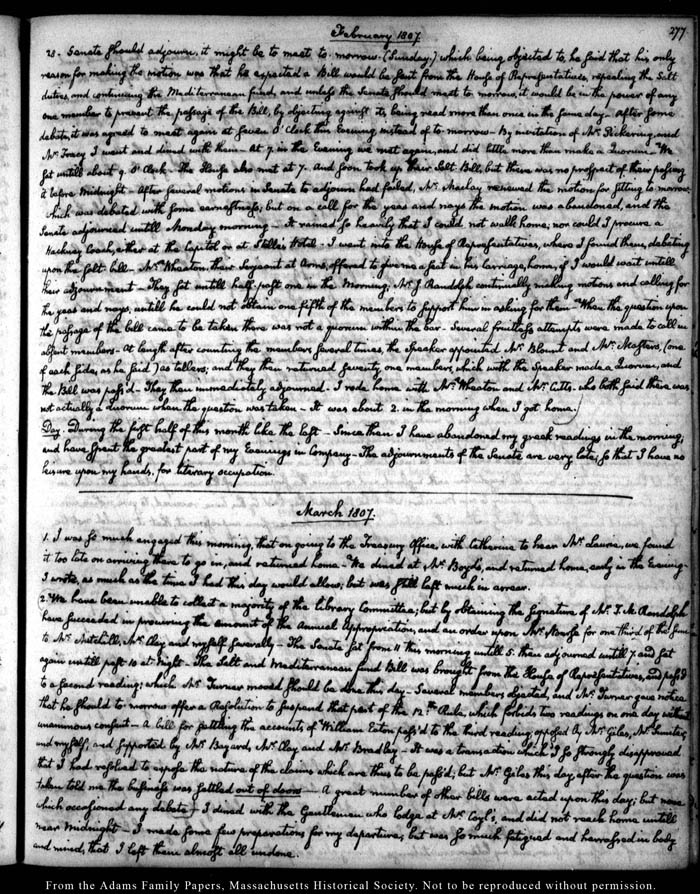 February 1807
277
28. Senate should adjourn, it might be to meet to-morrow. (Sunday.) which being objected to, he said that his only
reason for making the motion was that he expected a Bill would be sent from the House of Representatives, repealing the Salt
duties, and continuing the Mediterranean fund, and unless the Senate should meet to-morrow, it would be in the power of any
one member to prevent the passage of the Bill, by objecting against its being read more than once in the same day. After some
debate, it was agreed to meet again at seven O'Clock this Evening instead of to-morrow — By invitation of Mr. Pickering, and
Mr. Tracy I went and dined with them — At 7 in the Evening we met again, and did little more than make a Quorum. We
sat untill about 9. O'Clock — The House also met at 7. And soon took up their Salt Bill, but there was no prospect of their passing
it before Midnight — After several motions in Senate to adjourn had failed, Mr. Maclay renewed the motion for sitting to-morrow,
which was debated with some earnestness; but on a call for the yeas and nays the motion was abandoned, and the
Senate adjourned untill Monday morning — It rained so heavily that I could not walk home; nor could I procure a
Hackney Coach, either at the Capitol or at Stelle's Hotel — I went into the House of Representatives, where I found them, debating
upon the salt bill — Mr. Wheaton, their Sergeant at Arms, offered to give me a seat in his carriage, home, if I would wait untill
their adjournment — They sat untill half past one in the Morning; Mr. J. Randolph continually making motions and calling for
the yeas and nays, untill he could not obtain one fifth of the members to support him in asking for them — When the question upon
the passage of the bill came to be taken there was not a quorum within the bar — Several fruitless attempts were made to call in
absent members — At length after counting the members several times, the Speaker appointed Mr. Blount and Mr. Masters, (one
of each side, as he said) as tellers; and they then returned seventy one members, which with the Speaker made a Quorum, and
the Bill was pass'd — They then immediately adjourned — I rode home with Mr. Wheaton and Mr. Cutts. who both said there was
not actually a quorum when the question was taken — It was about 2. in the morning when I got home.
Day. During the first half of this month like the last — Since then I have abandoned my greek readings in the morning,
and have spent the greatest part of my Evenings in Company — The adjournments of the Senate are very late; so that I have no
leisure upon my hands, for literary occupation.
March 1807.
1. I was so much engaged this morning, that on going to the Treasury Office, with Catherine to hear Mr. Laurie, we found
it too late on arriving there to go in; and returned home — We dined at Mr. Boyd's, and returned home, early in the Evening —
I wrote, as much as the time I had this day would allow; but was still left much in arrear.
2. We have been unable to collect a majority of the Library Committee; but by obtaining the Signature of Mr. T. M. Randolph
have succeeded in procuring the amount of the Annual Appropriation, and an order upon Mr. Nourse for one third of the sum
to Mr. Mitchill, Mr. Clay and myself severally — The Senate sat from 11 this morning untill 5. then adjourned untill 7, and sat
again untill past 10 at Night — The Salt and Mediterranean fund Bill was brought from the House of Representatives, and pass'd
to a second reading; which Mr. Turner moved should be done this day — Several members objected, and Mr. Turner gave notice
that he should to-morrow offer a Resolution to suspend that part of the 12th. Rule, which forbids two readings on one day without
unanimous consent — A bill for settling the accounts of William Eaton pass'd to the third reading, opposed by Mr. Giles, Mr. Sumter,
and myself; and supported by Mr. Bayard, Mr. Clay and Mr. Bradley — It was a transaction which I so strongly disapproved
that I had resolved to expose the nature of the claims which are thus to be pass'd; but Mr. Giles this day, after the question was
taken told me the business was settled out of doors — A great number of other bills were acted upon this day; but none
which occasioned any debate — I dined with the Gentlemen who lodge at Mr. Coyle's, and did not reach home untill
near Midnight — I made some few preparations for my departure; but was so much fatigued and harrassed in body
and mind, that I left them almost all undone.
From the Adams Family Papers, Massachusetts Historical Society. Not to be reproduced without permission.